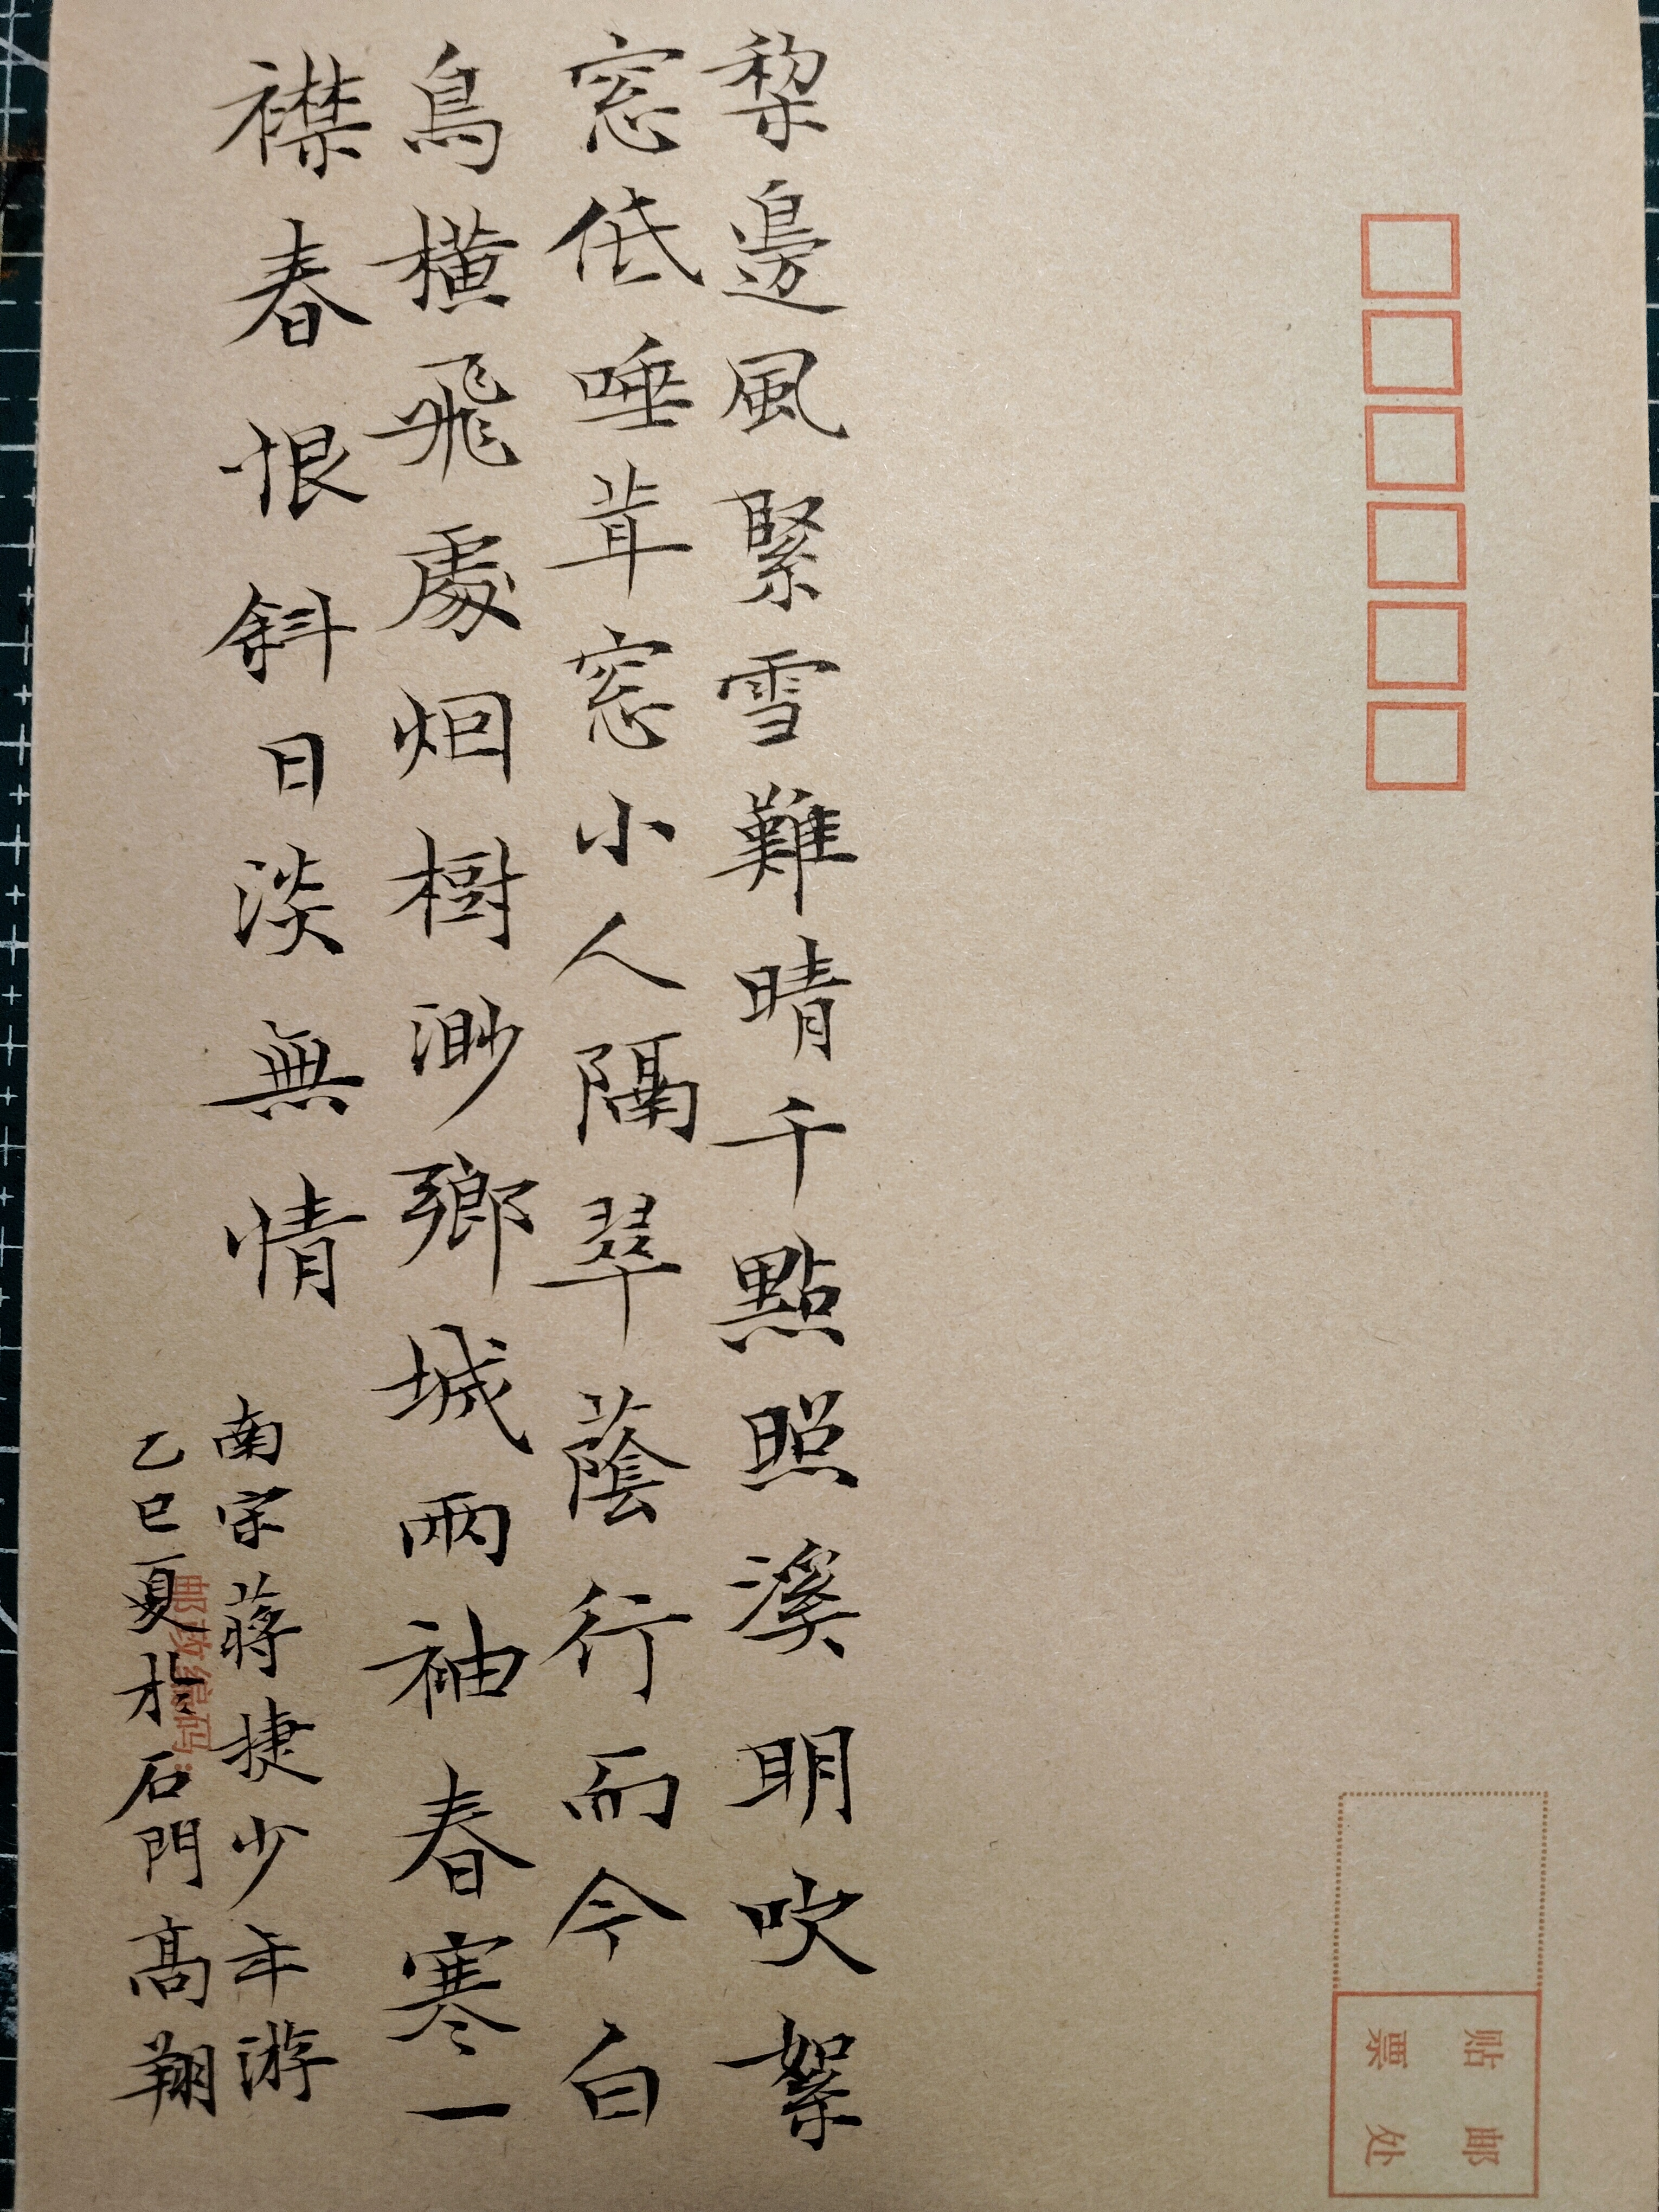 棃邊風緊雪難晴千點照溪明吹絮
窓低唾茸窓小人隔翠蔭行而今白
鳥横飛處烟樹渺鄉城兩袖春寒一
襟春恨斜日淡無情
南宋蔣捷少年游
乙巳夏於石門高翔
邮政编码：
贴邮
票处